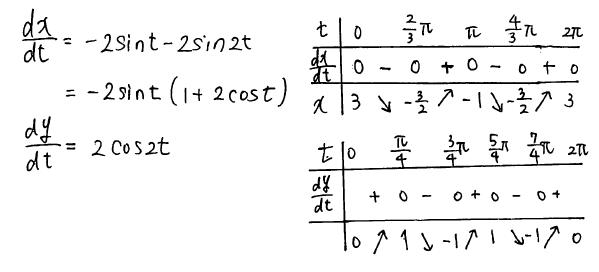 dx/dt = -2sint-2sin2t
= -2sint (1+2cost)
dy/dt = 2cos2t
t | 0 2/3π π 4/3π 2π
dx/dt | 0 - 0 + 0 - 0 + 0
x | 3 ↘ -3/2 ↗ -1 ↘ -3/2 ↗ 3
t | 0 π/4 3/4π 5/4π 7/4π 2π
dy/dt | + 0 - 0 + 0 - 0 +
| 0 ↗ 1 ↘ -1 ↗ 1 ↘ -1 ↗ 0